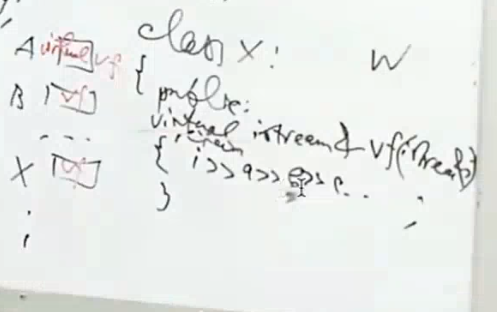 A virtual vf
B vf
...
X vf
class X : W
{ public:
virtual istream& vf(istream&)
{ return
i>>a>>b>>c...
} ;